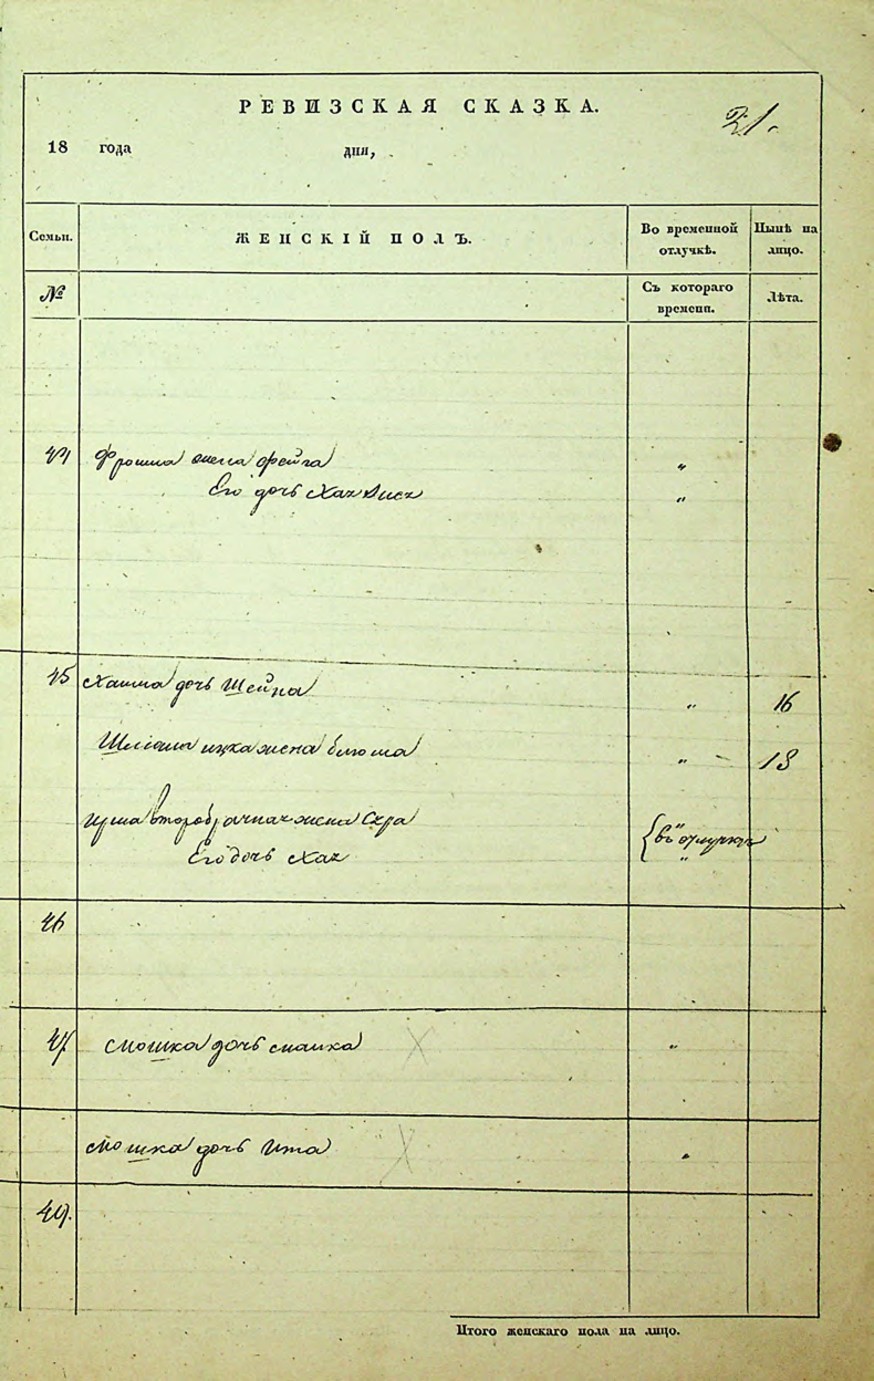 РЕВИЗСКАЯ СКАЗКА.
21.
18 года дня,
Семьи.
ЖЕНСКІЙ ПОЛЪ.
Во временной отлучкѣ.
Нынѣ на лицо.
№
Съ котораго времени.
Лѣта.
жена фейга "
Его дочь "
45 дочь Шейна " 16
ицка жена блюма " 18
второбрачная жена Сора
Его дочь Хая { въ отлучкѣ "
46
47 Мошка дочь малка "
Мошка дочь Ита "
49.
Итого женскаго пола на лицо.